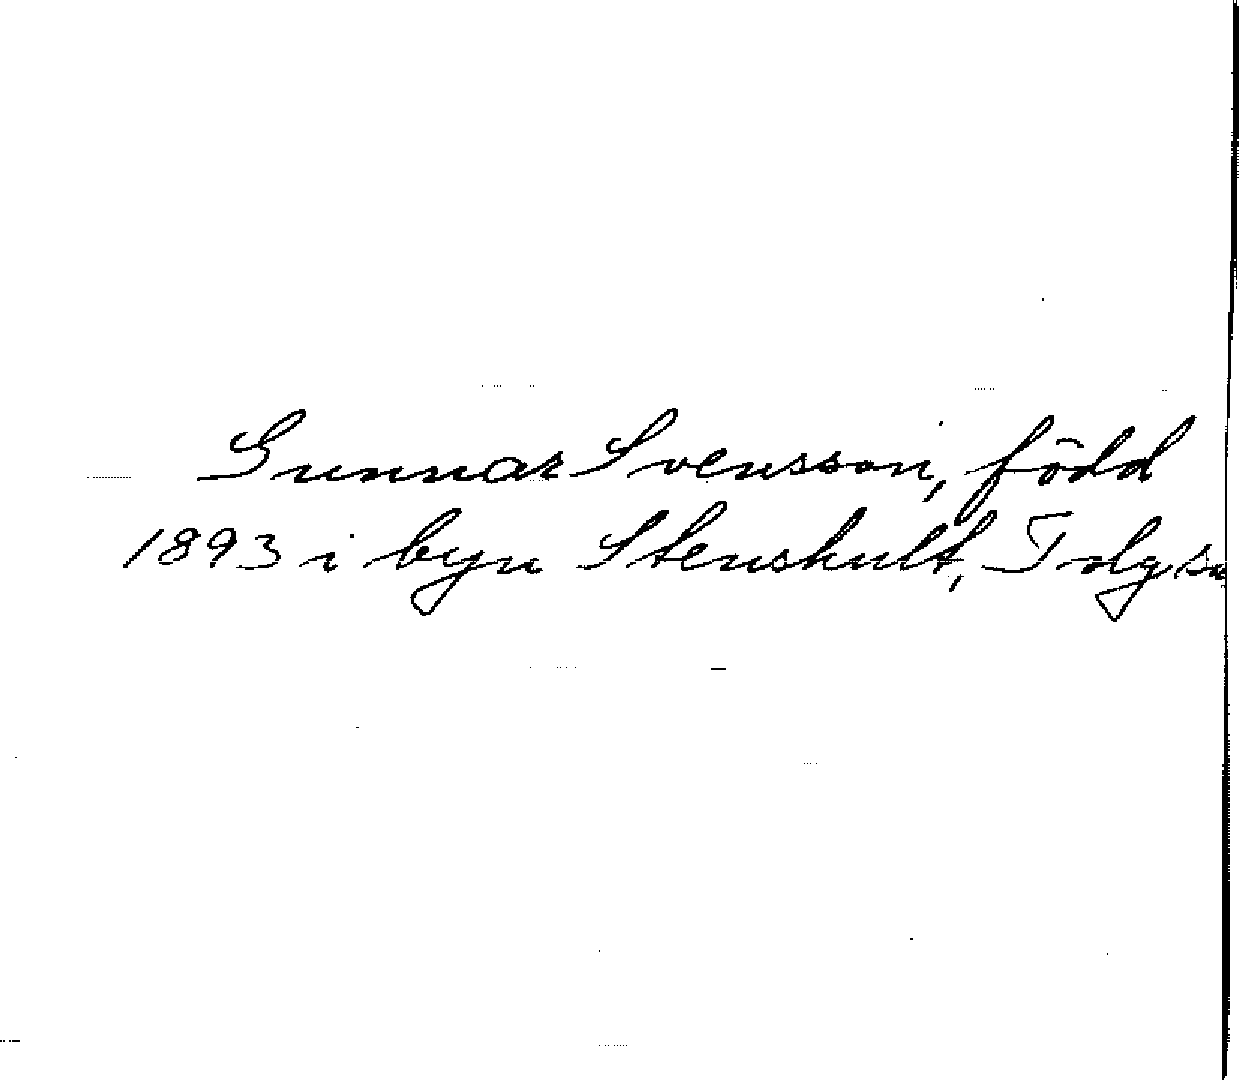 Gunnar Svensson, född
1893 i byn Stenshult,